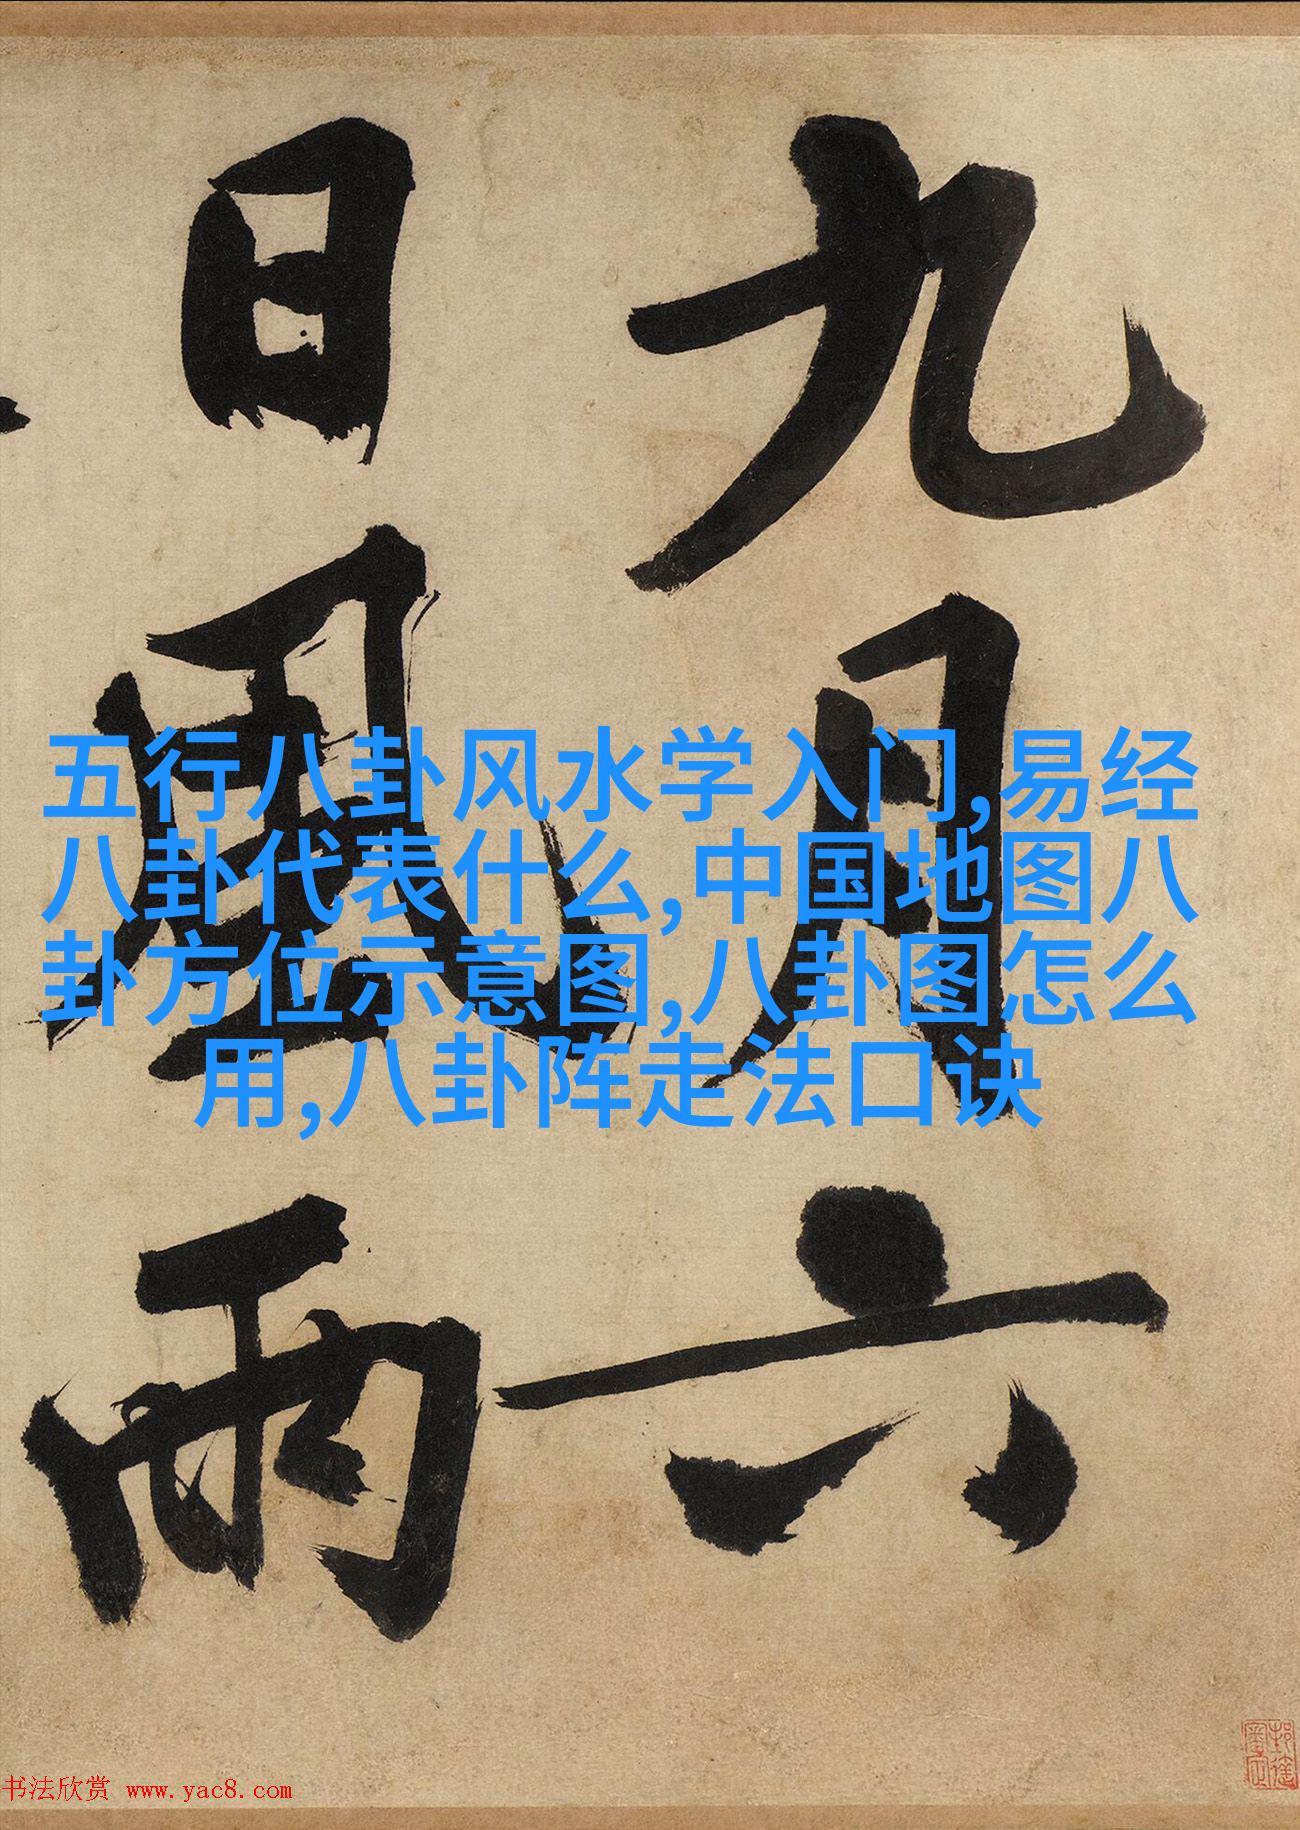 九月六
日風雨
五行八卦风水学入门,易经
八卦代表什么,中国地图八
卦方位示意图,八卦图怎么
用,八卦阵走法口诀
书法欣赏 www.yac8.com